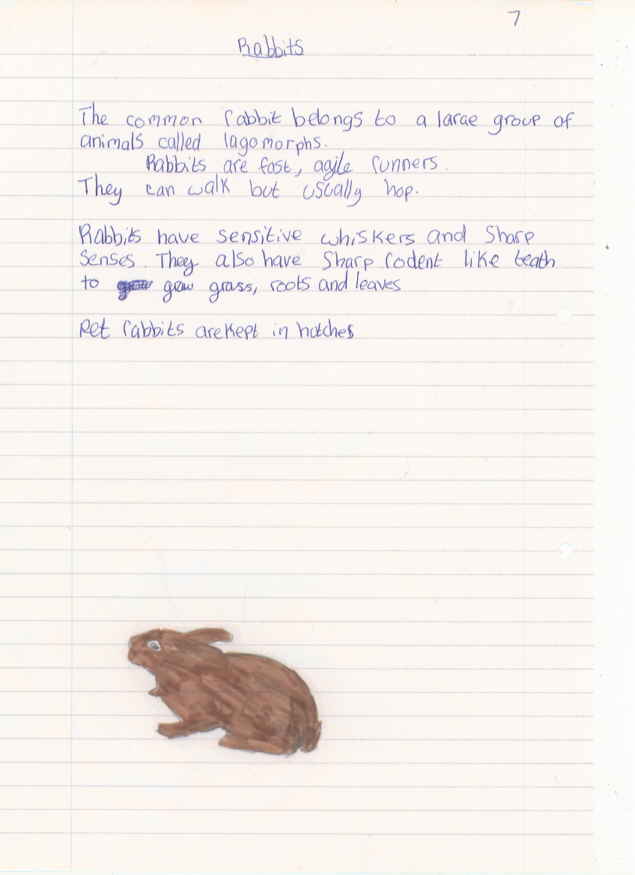 7
Rabbits
The common rabbit belongs to a large group of
animals called lagomorphs.
Rabbits are fast, agile runners.
They can walk but usually hop.
Rabbits have sensitive whiskers and Sharp
Senses. They also have Sharp rodent like teath
to gnw grass, roots and leaves
Pet rabbits are kept in hutches